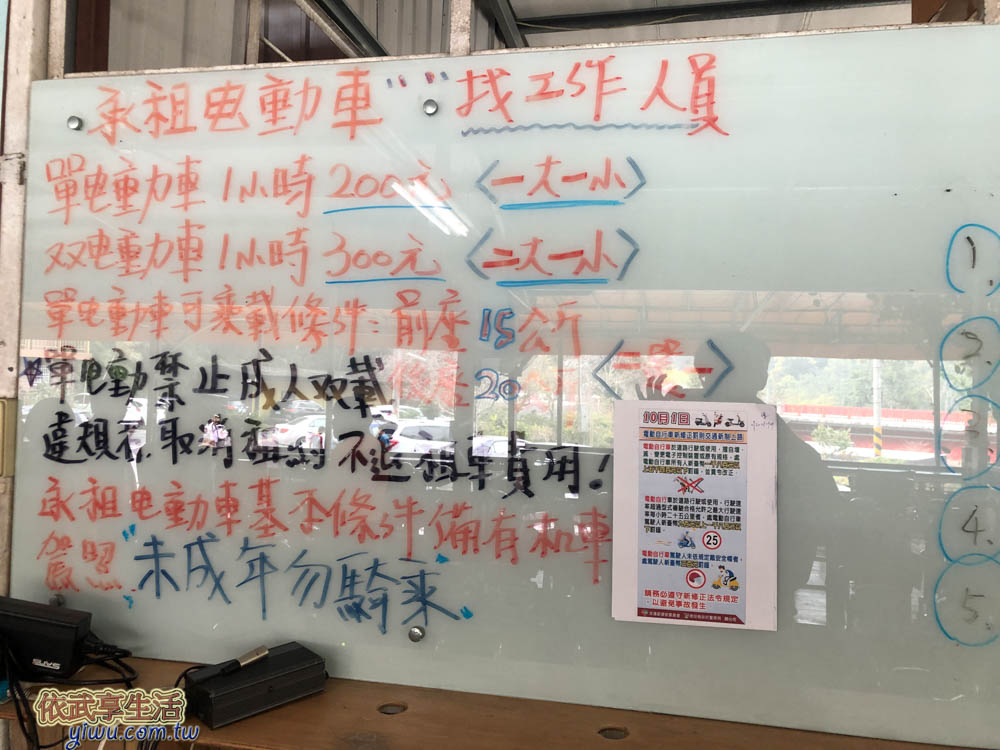 承祖电動車 "" 找工作人員
單电動車 1小時 200元 <一大一小>
双电動車 1小時 300元 <二大一小>
單电動車可乘載條件: 前座15公斤
20
*單电動禁止成人双載
違規者取消租約不退租車費用!
承祖电動車基本條件備有机車
駕照 "未成年勿騎乘"
1.
2.
3.
4.
5.
10月1日
電動自行車新修正罰則交通新制上路
25
電動自行車駕駛人未依規定戴安全帽者,
請務必遵守新修正法令規定
以避免事故發生
依武享生活
yiwu.com.tw